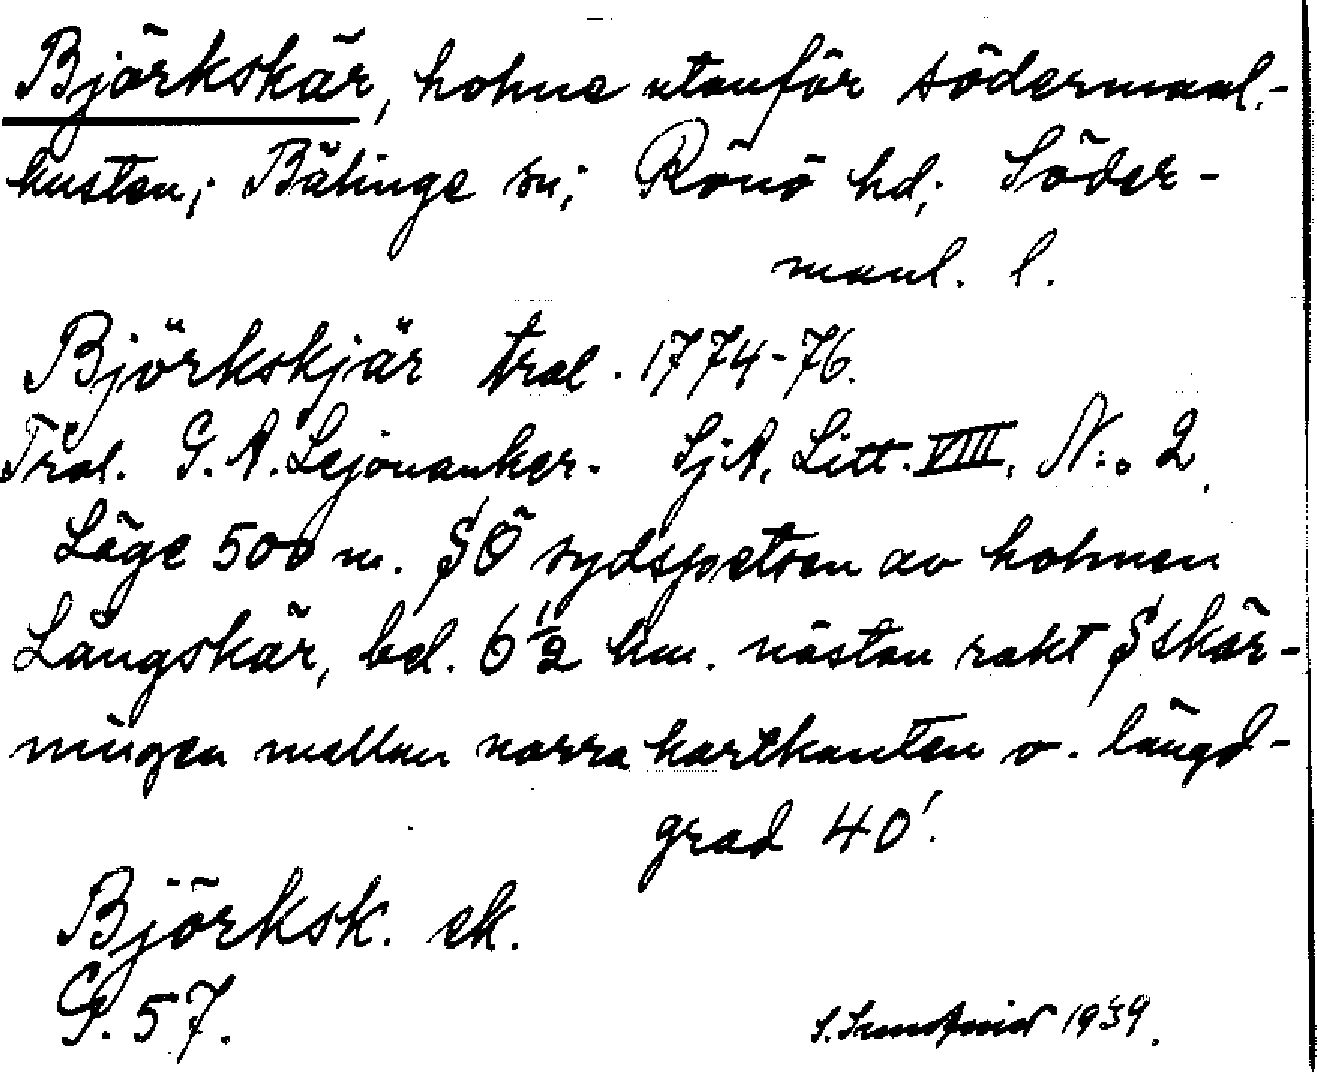 Björkskär, holme utanför södermanl.-
kusten; Bälinge sn; Rönö hd; Söder-
manl. l.
Björkskjär Frol. 1774-76.
Fröl. G. A. Lejonanker. SjA, Litt. VIII, N:o 2.
Läge 500 m. SÖ sydspetsen av holmen
Långskär, bel. 6 1/2 km. nästan rakt S skär-
ningen mellan norra kartkanten o. längd-
grad 40'.
Björksk. ek.
G. 57.
1939.